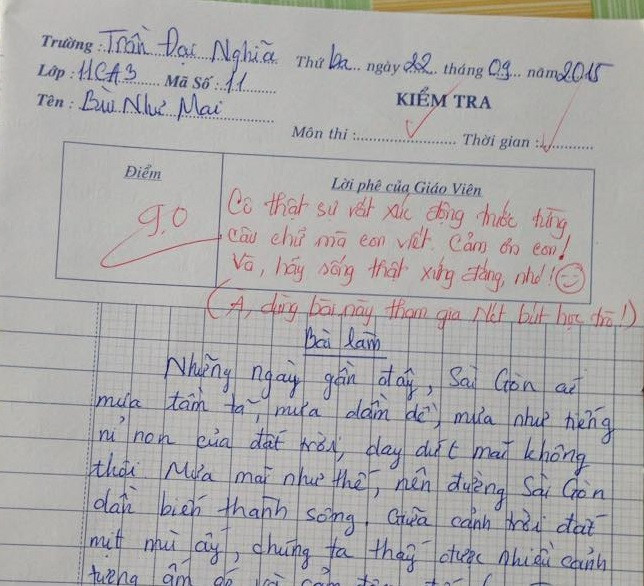 Trường : Trần Đại Nghĩa Thứ ba... ngày 22.. tháng 09... năm 2015
Lớp : 11CA3 Mã Số : 11
KIỂM TRA
Tên : Bùi Như Mai
Môn thi : Thời gian :
Điểm
Lời phê của Giáo Viên
9.0
Cô thật sự rất xúc động trước từng
câu chữ mà con viết. Cảm ơn con!
Và, hãy sống thật xứng đáng, nhé!
(À, dùng bài này tham gia Nét bút học trò!)
Bài làm
Những ngày gần đây, Sài Gòn cứ
mưa tầm tã, mưa dầm dề, mưa như tiếng
nỉ non của đất trời, day dứt mãi không
thôi. Mưa mãi như thế, nên đường Sài Gòn
dần biến thành sông. Giữa cảnh trời đất
mịt mù ấy, chúng ta thấy được nhiều cảnh
tượng ấm